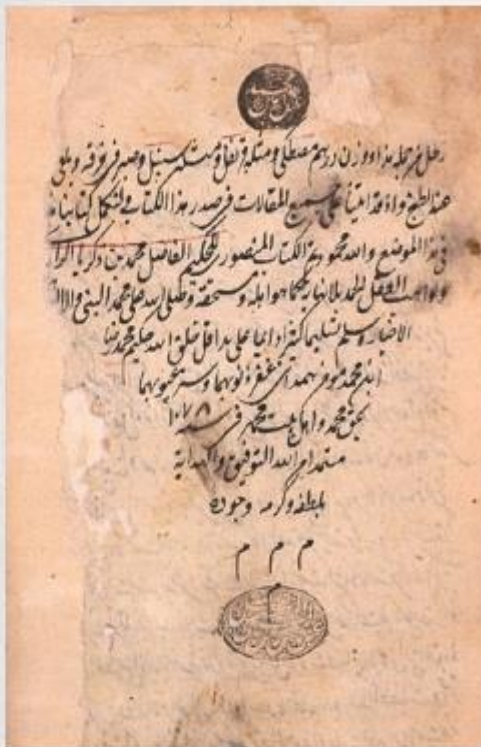 رطل من جملة هذا ووزن درهم مصطكى ومثله قرنفل ومثله سنبل وصير فى خرقة ويلقى
عند الطبخ واذ قد اتينا على جميع المقالات فى صدر هذا الكتاب فلنكمل كتابنا
فى هذا الموضع والله محمود تم الكتاب المنصورى للحكيم الفاضل محمد بن زكريا الرازى
ولواهب العقل الحمد بلا نهاية كما هو اهله ومستحقه وصلى الله على محمد النبى واله
الاخيار وسلم تسليما كثيرا دايما على يد اقل خلق الله حكيم محمد رضا
ابن محمد مومن همدانى غفر ذنوبهما وستر عيوبهما
بحق محمد واهل بيت محمد فى سنه ١٠٧٨
مستمدا من الله التوفيق والهداية
بلطفه وكرمه وجوده
م م م
م